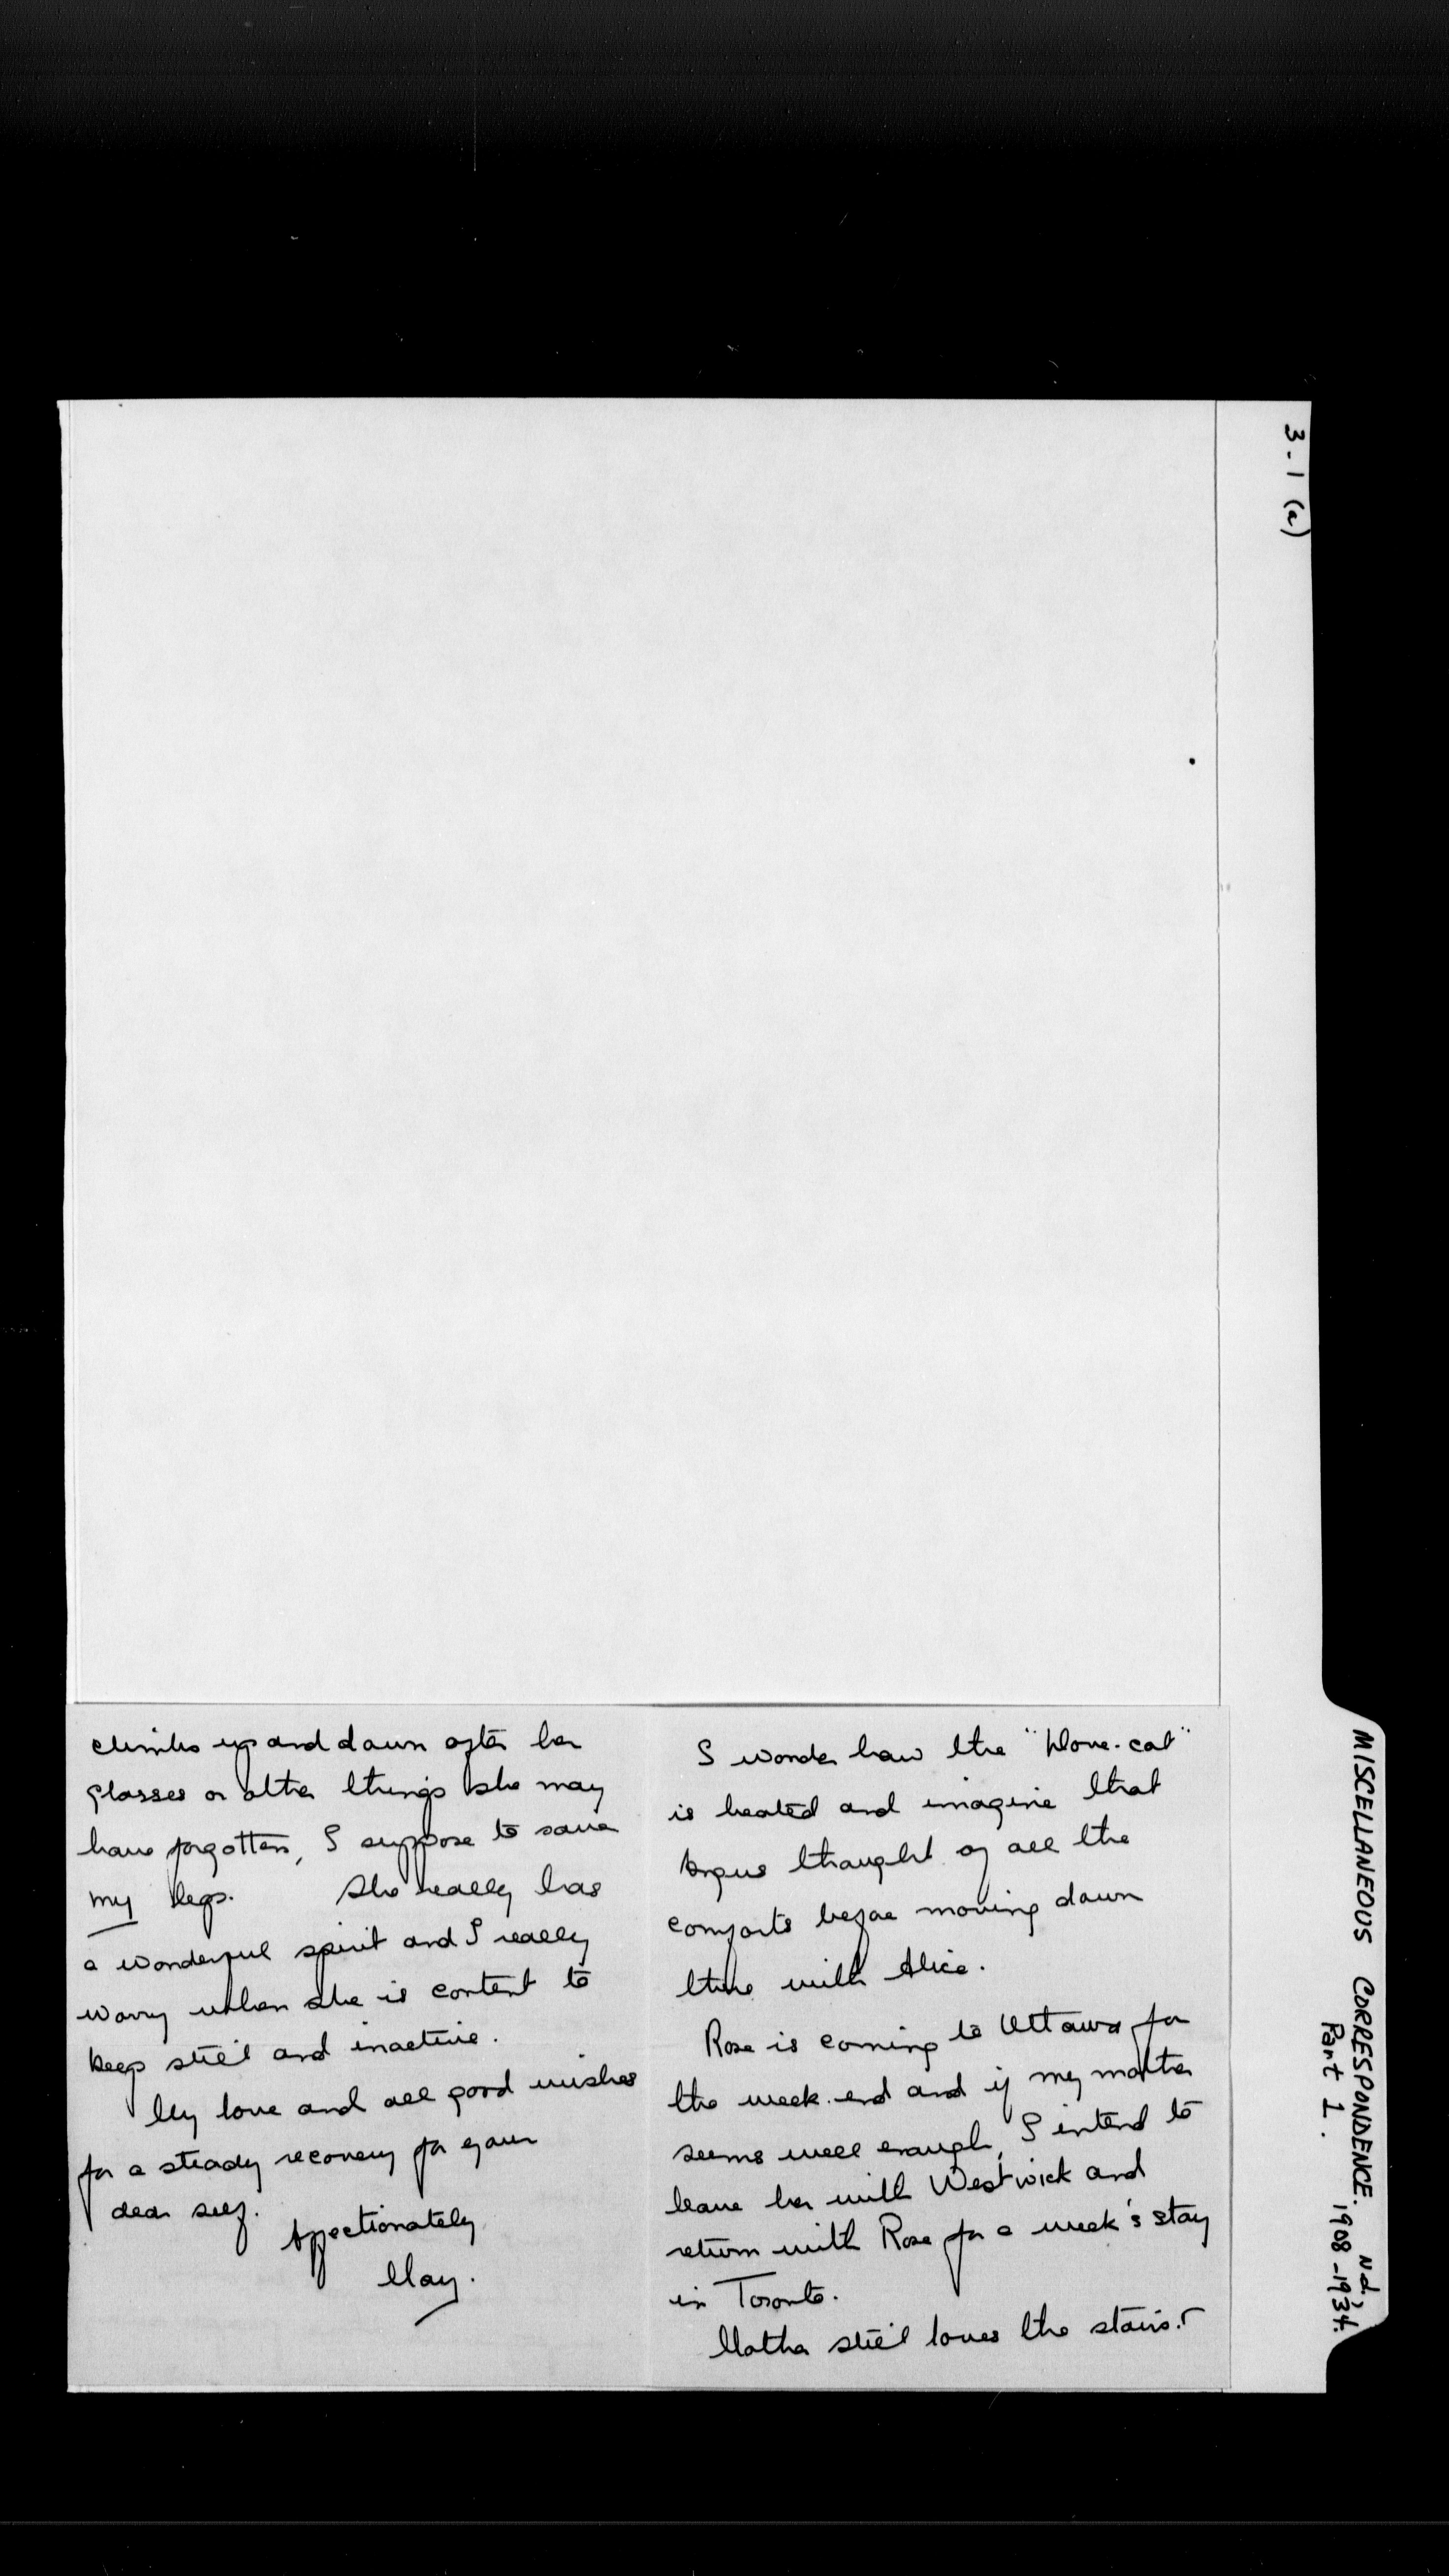 3-1 (a)
MISCELLANEOUS CORRESPONDENCE. N.d.,
Part 1. 1908-1934.
climbs up and down after her
glasses or other things she may
have forgotten, I suppose to save
my legs. She really has
a wonderful spirit and I really
worry when she is content to
keep still and inactive.
My love and all good wishes
for a steady recovery for your
dear self.
Affectionately
May.
I wonder how the "Dove-cot"
is heated and imagine that
Angus thought of all the
comforts before moving down
there with Alice.
Rose is coming to Ottawa for
the week-end and if my mother
seems well enough, I intend to
leave her with Westwick and
return with Rose for a week's stay
in Toronto.
Mother still loves the stairs.